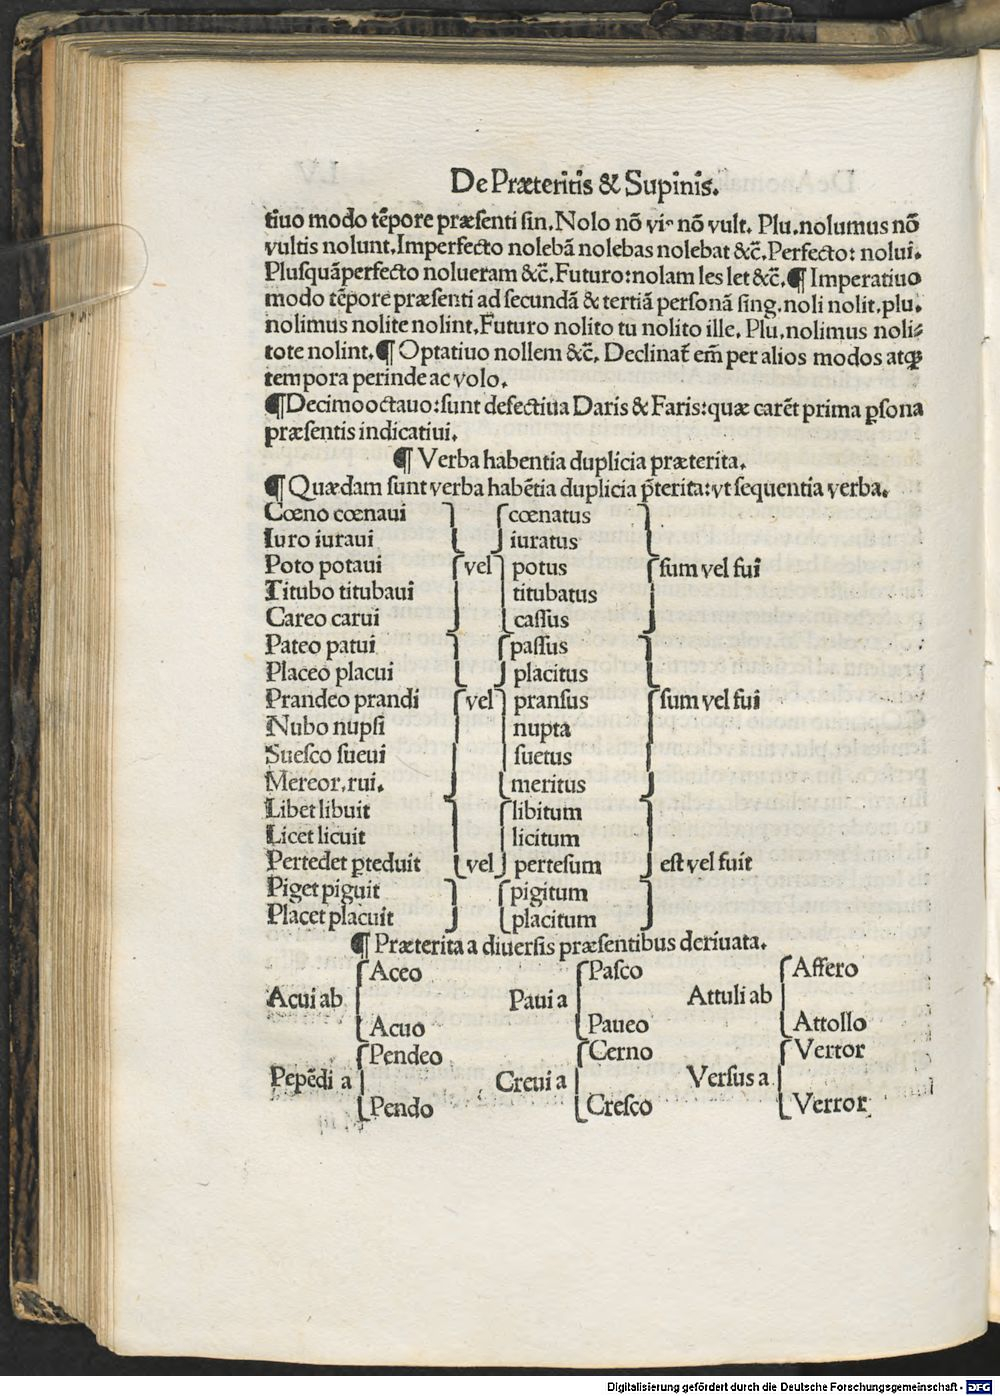 De Præteritis & Supinis.
tiuo modo tēpore præsenti sin. Nolo nō viˢ nō vult. Plu. nolumus nō
vultis nolunt. Imperfecto nolebā nolebas nolebat &c̄. Perfecto: nolui.
Plusquāperfecto nolueram &c̄. Futuro: nolam les let &c̄. ¶ Imperatiuo
modo tēpore præsenti ad secundā & tertiā personā sing. noli nolit. plu.
nolimus nolite nolint. Futuro nolito tu nolito ille. Plu. nolimus noli⸗
tote nolint. ¶ Optatiuo nollem &c̄. Declinat̄ em̄ per alios modos atqꝫ
tempora perinde ac volo.
¶ Decimooctauo: sunt defectiua Daris & Faris: quæ carēt prima ꝑsona
præsentis indicatiui.
¶ Verba habentia duplicia præterita.
¶ Quædam sunt verba habētia duplicia p̄terita: vt sequentia verba.
Cœno cœnaui cœnatus
Iuro iuraui iuratus
Poto potaui vel potus sum vel fui
Titubo titubaui titubatus
Careo carui cassus
Pateo patui passus
Placeo placui placitus
Prandeo prandi vel pransus sum vel fui
Nubo nupsi nupta
Suesco sueui suetus
Mereor, rui. meritus
Libet libuit libitum
Licet licuit licitum
Pertedet ꝑteduit vel pertesum est vel fuit
Piget piguit pigitum
Placet placuit placitum
¶ Præterita a diuersis præsentibus deriuata.
Aceo Pasco Affero
Acui ab Paui a Attuli ab
Acuo Paueo Attollo
Pendeo Cerno Vertor
Pepēdi a Creui a Versus a
Pendo Cresco Verror
Digitalisierung gefördert durch die Deutsche Forschungsgemeinschaft - DFG